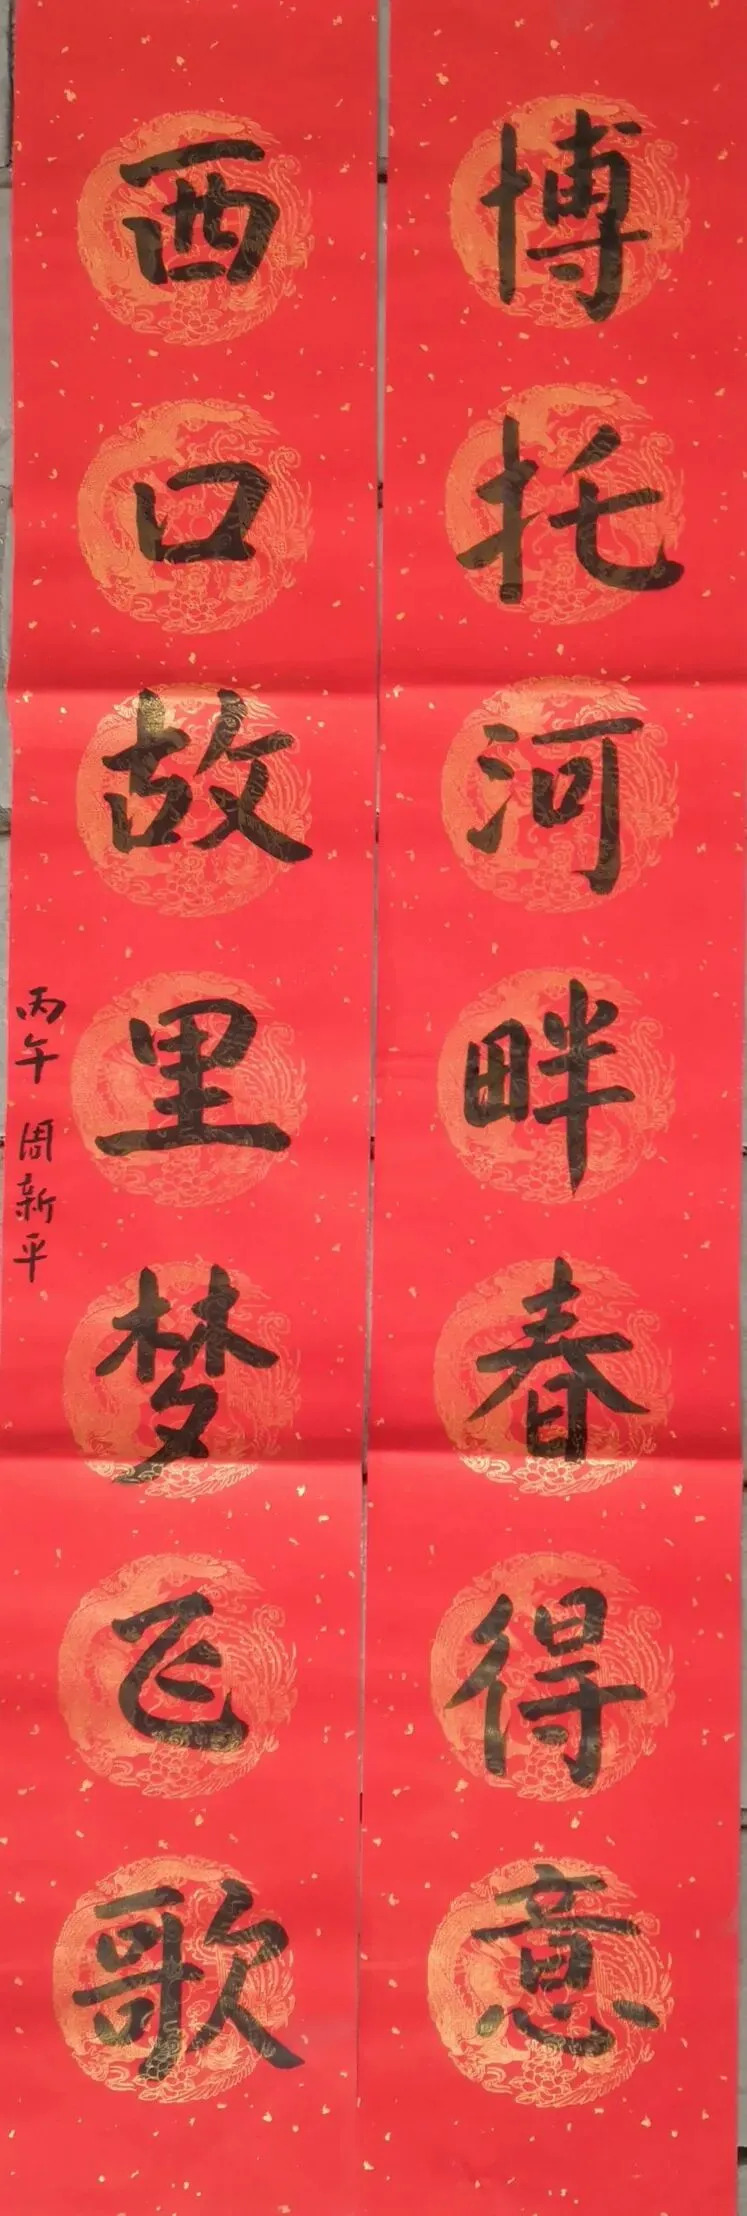 博托河畔春得意
西口故里梦飞歌
丙午 周新平